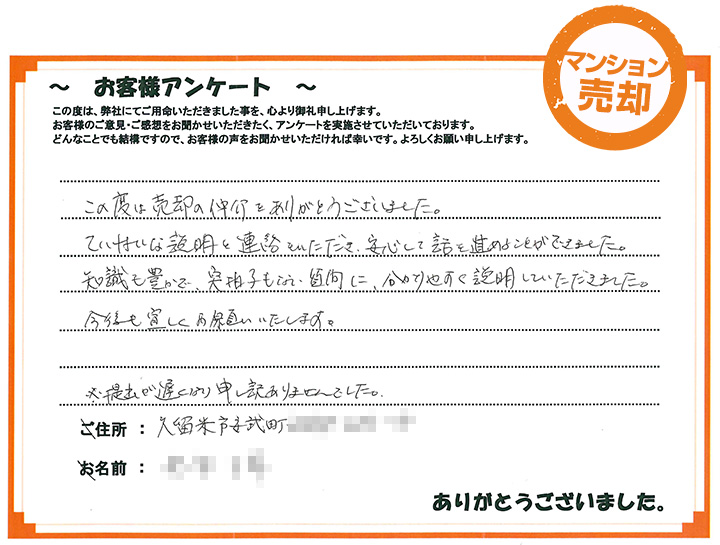 マンション
売却
～ お客様アンケート ～
この度は、弊社にてご用命いただきました事を、心より御礼申し上げます。
お客様のご意見・ご感想をお聞かせいただきたく、アンケートを実施させていただいております。
どんなことでも結構ですので、お客様の声をお聞かせいただければ幸いです。よろしくお願い申し上げます。
この度は売却の仲介をありがとうございました。
ていねいな説明と連絡をいただき、安心して話を進めることができました。
知識も豊かで、突拍子もない質問に、分かりやすく説明していただきました。
今後も宜しくお願いいたします。
※提出が遅くなり申し訳ありませんでした。
ご住所 : 久留米市安武町
お名前 :
ありがとうございました。